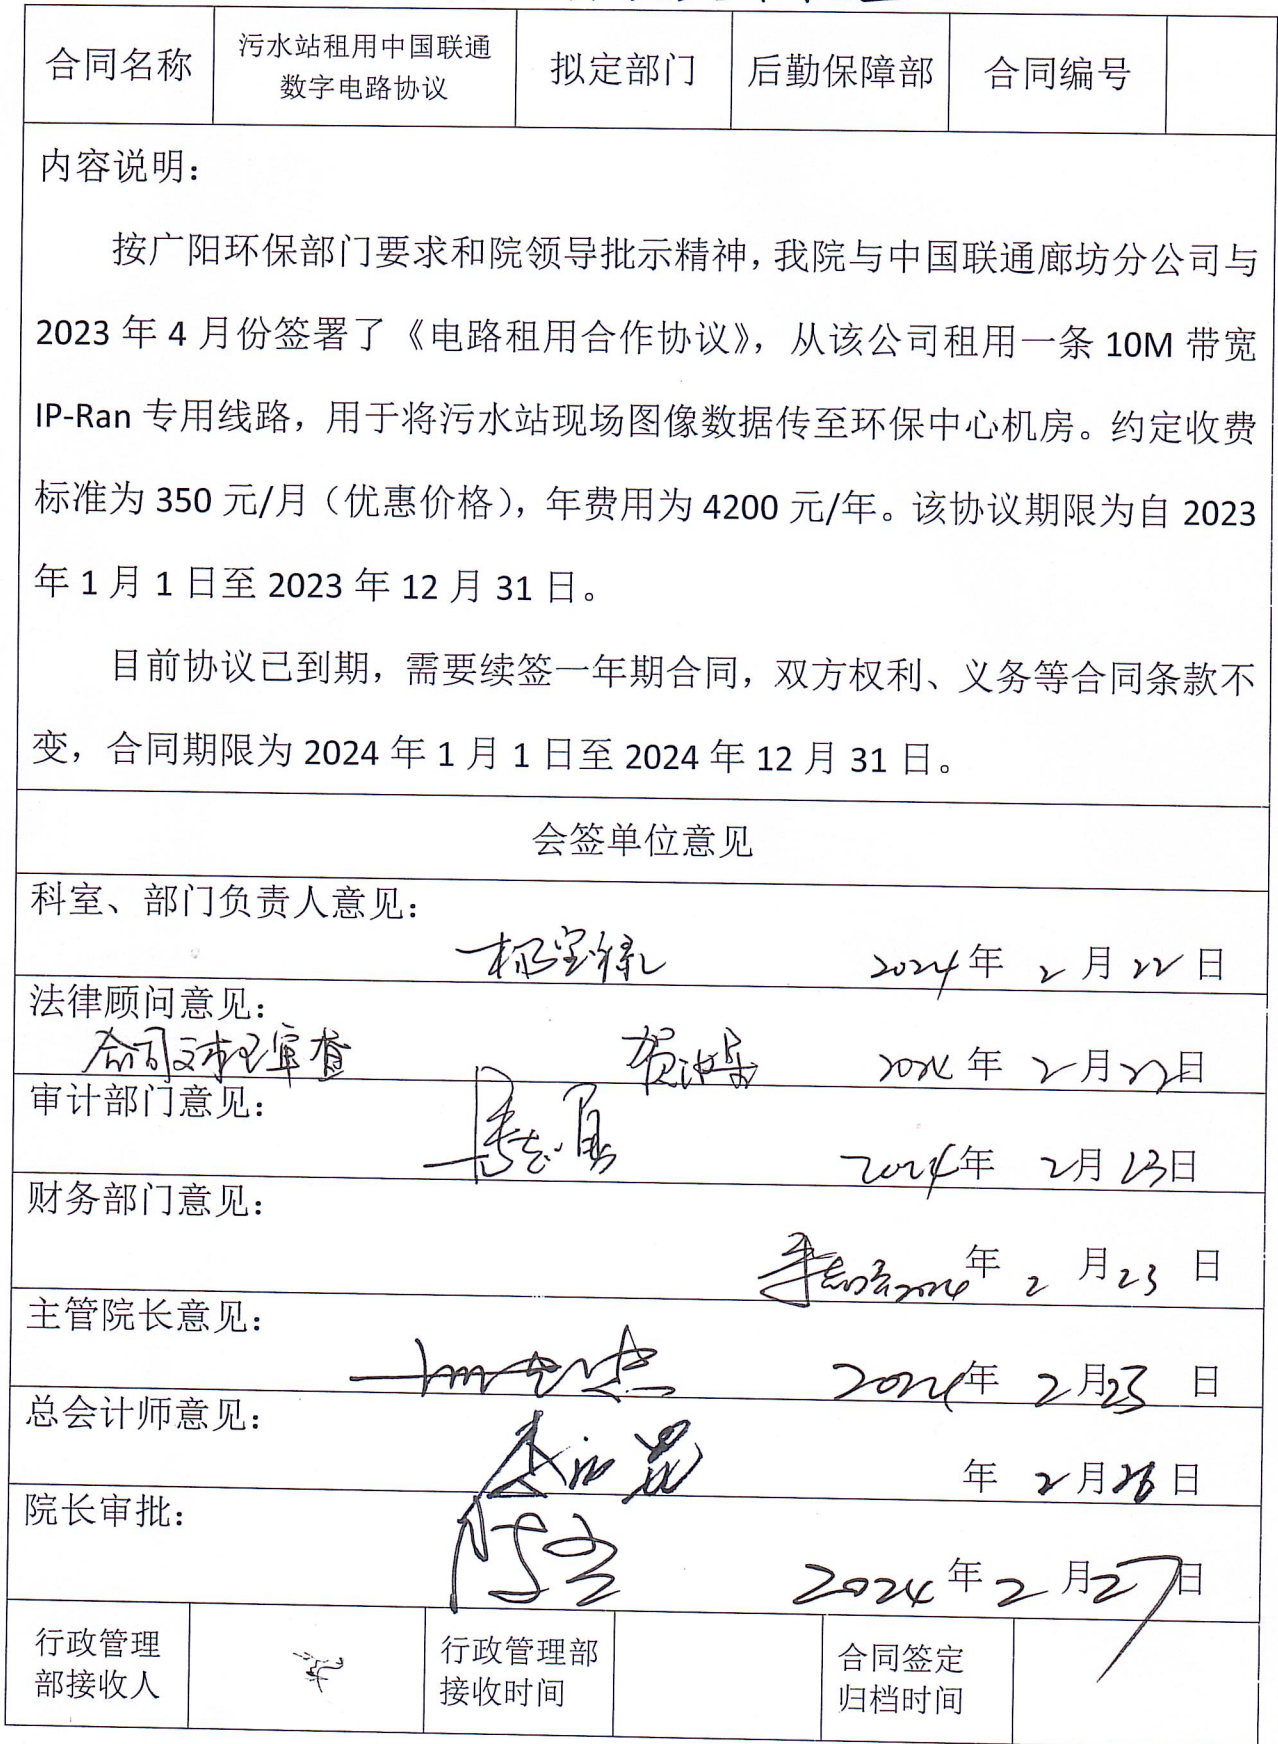 合同名称 污水站租用中国联通数字电路协议 拟定部门 后勤保障部 合同编号
内容说明：
按广阳环保部门要求和院领导批示精神，我院与中国联通廊坊分公司与
2023 年 4 月份签署了《电路租用合作协议》，从该公司租用一条 10M 带宽
IP-Ran 专用线路，用于将污水站现场图像数据传至环保中心机房。约定收费
标准为 350 元/月（优惠价格），年费用为 4200 元/年。该协议期限为自 2023
年 1 月 1 日至 2023 年 12 月 31 日。
目前协议已到期，需要续签一年期合同，双方权利、义务等合同条款不
变，合同期限为 2024 年 1 月 1 日至 2024 年 12 月 31 日。
会签单位意见
科室、部门负责人意见：
2024年 2 月 22 日
法律顾问意见：
合同文本已审查 2024 年 2 月 22 日
审计部门意见：
2024年 2 月 23 日
财务部门意见：
2024年 2 月 23 日
主管院长意见：
2024年 2 月 23 日
总会计师意见：
年 2 月 26 日
院长审批：
2024 年 2 月 27 日
行政管理部接收人 行政管理部接收时间 合同签定归档时间